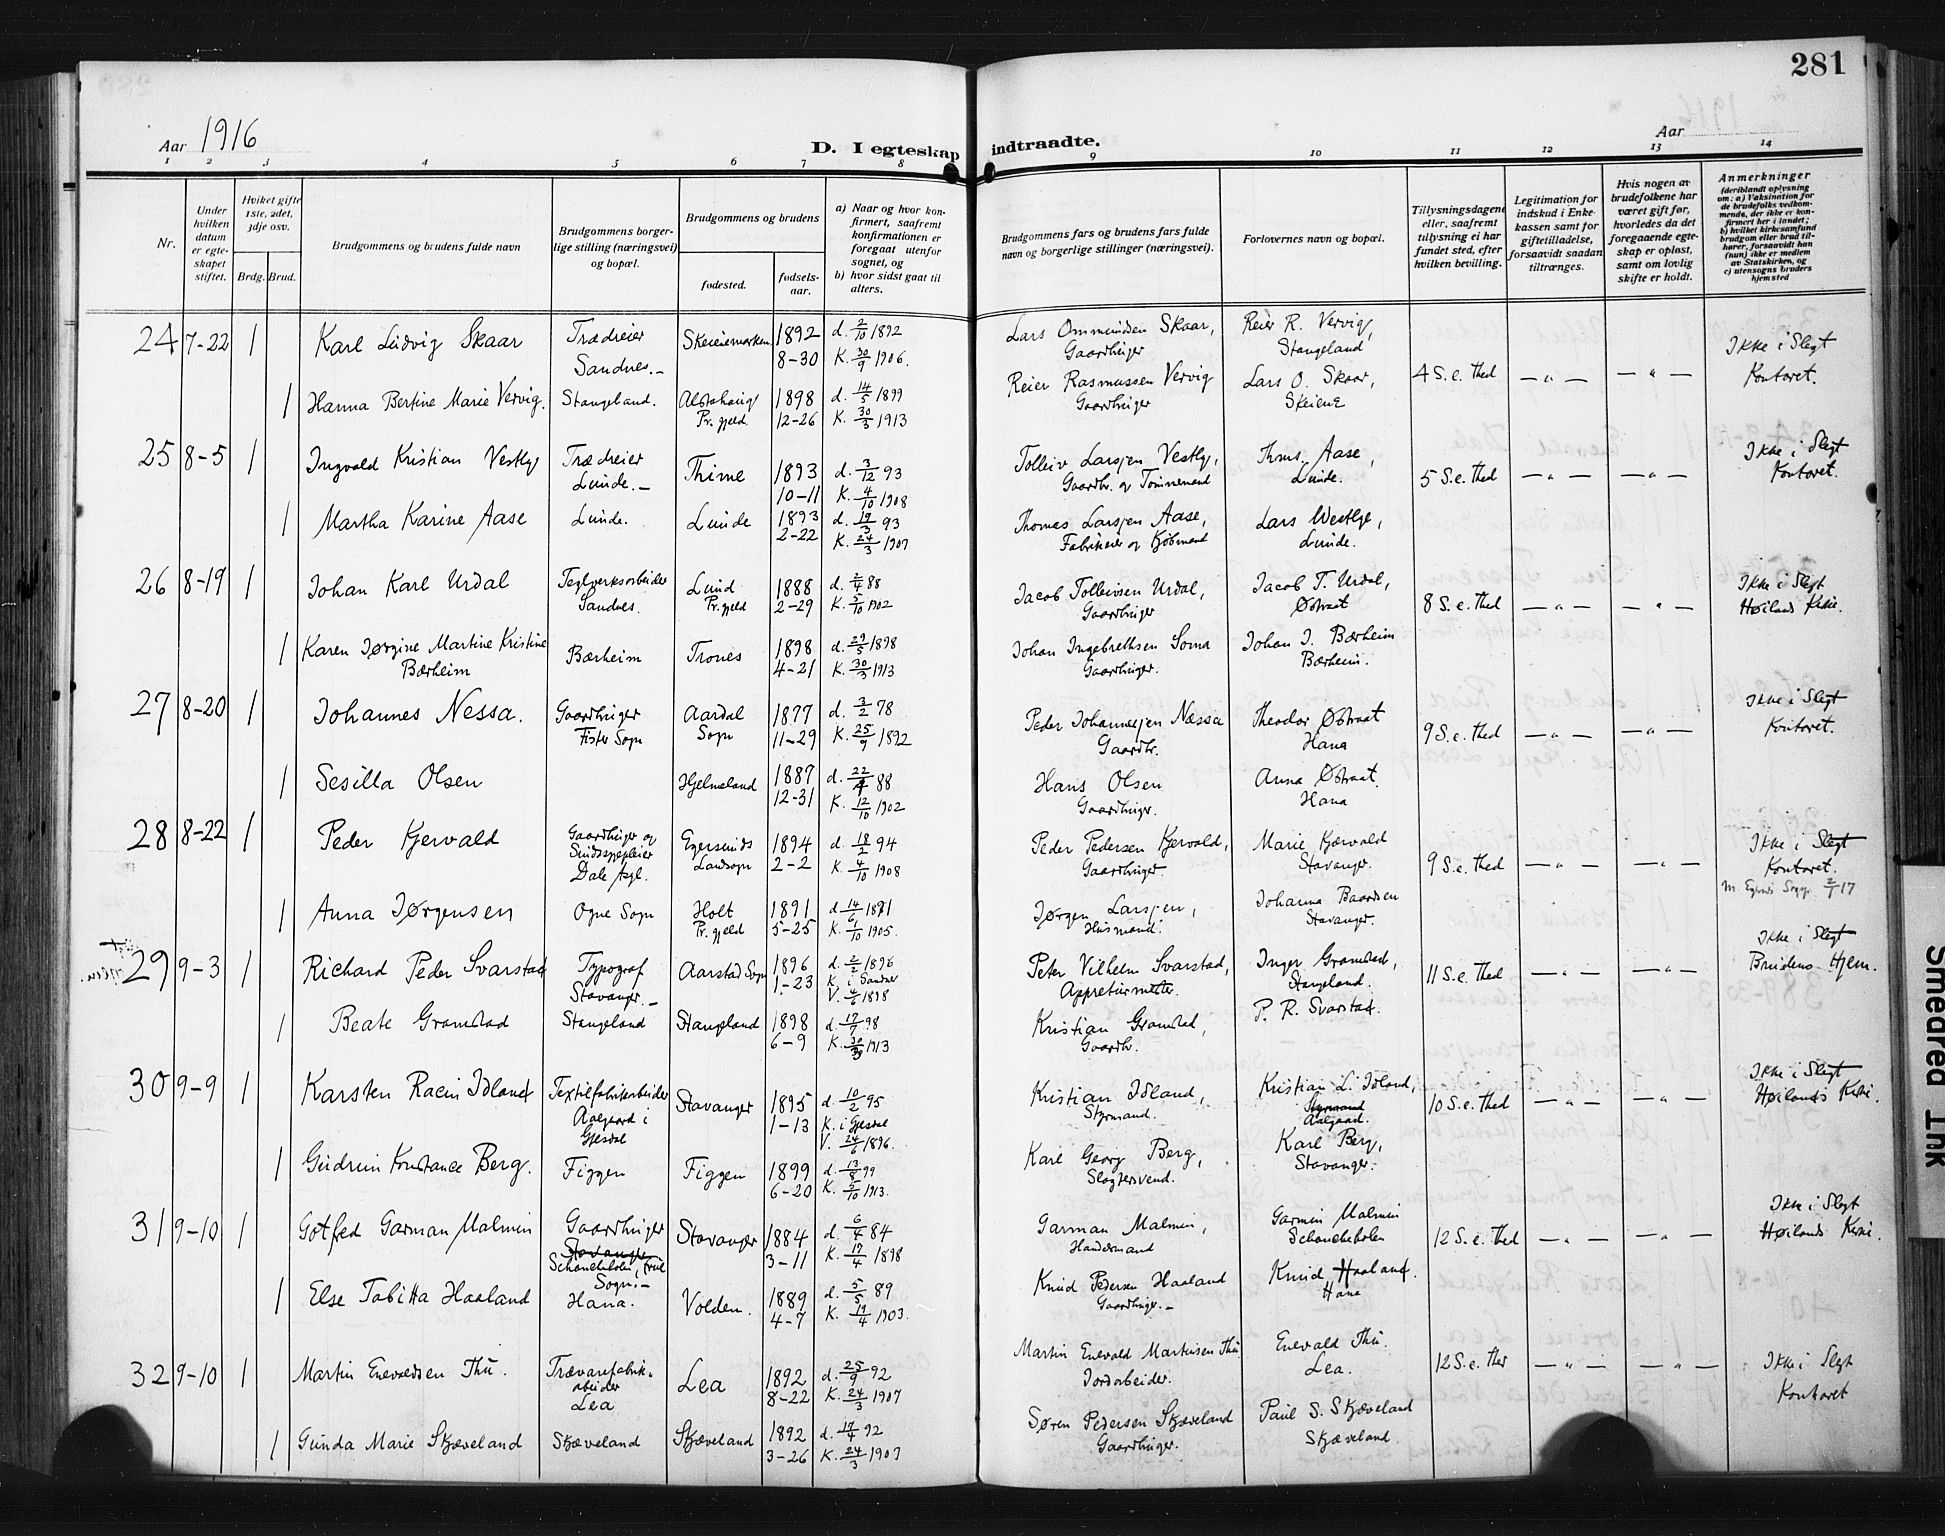 281
Aar 1916
D. I egteskap indtraadte.
Aar
1 2 3 4 5 6 7 8 9 10 11 12 13 14
Nr.
Under hvilken datum er egteskapet stiftet.
Hviket gifte 1ste, 2det, 3dje osv.
Brdg. Brud.
Brudgommens og brudens fulde navn
Brudgommens borgerlige stilling (næringsvei) og bopæl.
Brudgommens og brudens
fødested.
fødselsaar.
a) Naar og hvor konfirmert, saafremt konfirmationen er foregaat utenfor sognet, og
b) hvor sidst gaat til alters.
Brudgommens fars og brudens fars fulde navn og borgerlige stillinger (næringsvei).
Forlovernes navn og bopæl.
Tillysningsdagene eller, saafremt tillysning ei har fundet sted, efter hvilken bevilling.
Legitimation for indskud i Enkekassen samt for giftetilladelse, forsaavidt saadan tiltrænges.
Hvis nogen av brudefolkene har været gift før, hvorledes da det foregaaende egteskap er opløst, samt om lovlig skifte er holdt.
Anmerkninger
(deriblandt oplysning om: a) Vaksination for de brudefolks vedkommende, der ikke er konfirmert her i landet; b) hvilket kirkesamfund brudgom eller brud tilhører, forsaavidt han (hun) ikke er medlem av Statskirken, og c) utensogns bruders hjemsted
24 7-22 1 Karl Ludvig Skaar Trædreier Sandnes.- Skeiemarken 1892 8-30 d. 2/10 1892 K. 30/9 1906. Lars Ommundsen Skaar, Gaardbruger Reier R. Vervig, Stangeland 4 S. e. Thed — " — — " — Ikke i Slegt Kontoret.
1 Hanna Bertine Marie Vervig. Stangeland. Alstahaug Pr.gjeld 1898 12-26 d. 14/5 1899 K. 30/3 1913 Reier Rasmussen Vervig Gaardbruger Lars O. Skaar, Skeiene
25 8-5 1 Ingvald Kristian Vestly Trædreier Lunde.- Thime 1893 10-11 d. 3/12 93 K. 4/10 1908 Tolleiv Larsen Vestly, Gaardbr. og Tømmermand Thms. Aase, Lunde. 5 S. e. Thed — " — — " — Ikke i Slegt Kontoret.
1 Martha Karine Aase Lunde. Lunde 1893 2-22 d. 19/3 93 K. 24/3 1907 Thomas Larsen Aase, Fabrikeier og Kjøbmand Lars Westlye, Lunde.
26 8-19 1 Johan Karl Urdal Teglverksarbeider Sandnes. Lund Pr.gjeld 1888 2-29 d. 2/4 88 K. 5/10 1902 Jacob Tolleivsen Urdal, Gaardbruger Jacob T. Urdal, Østraat 8 S. e. Thed — " — — " — Ikke i Slegt Høilands Kirke.
1 Karen Jørgine Martine Kristine Bærheim Bærheim Trones 1898 4-21 d. 29/5 1898 K. 30/3 1913 Johan Ingebrethsen Soma Gaardbruger. Johan I. Bærheim Bærheim.
27 8-20 1 Johannes Nessa. Gaardbruger Fister Sogn Aardal Sogn 1877 11-29 d. 3/2 78 K. 25/9 1892 Peder Johannesen Næssa Gaardbr. Theodor Østraat Hana 9 S. e. Thed — " — — " — Ikke i Slegt Kontoret.
1 Sesilla Olsen Hjelmeland 1887 12-31 d. 22/4 88 K. 12/10 1902 Hans Olsen Gaardbruger. Anna Østraat. Hana
28 8-22 1 Peder Kjervald Gaardbruger og Sindssygepleier Dale Asyl. Egersunds Landsogn 1894 2-2 d. 18/2 94 K. 4/10 1908 Peder Pedersen Kjervald, Gaardbruger. Marie Kjærvald Stavanger. 9 S. e. Thed — " — — " — Ikke i Slegt Kontoret.
1 Anna Jørgensen Ogne Sogn Holt Pr.gjeld 1891 5-25 d. 14/6 1891 K. 1/10 1905. Jørgen Larsen, Husmand. Johanna Baardsen Stavanger.
29 9-3 1 Richard Peder Svarstad Typograf Stavanger.- Aarstad Sogn 1896 1-23 d. 2/2 1896 K. i Sandnes V. 4/6 1898 Peter Vilhelm Svarstad, Appreturmester. Inger Gramstad, Stangeland. 11 S. e. Thed — " — — " — Ikke i Slegt Brudens Hjem.
1 Beate Gramstad Stangeland Stangeland 1898 6-9 d. 17/7 98 K. 30/3 1913 Kristian Gramstad, Gaardbr. P. R. Svarstad.
30 9-9 1 Karsten Racin Idland Textilfabrikarbeider Aalgaard i Gjesdal Stavanger 1895 1-13 d. 10/2 95 K. i Gjesdal V. 24/6 1896. Kristian Idland, Styrmand. Kristian L. Idland, Styrmand Aalgaard. 10 S. e. Thed — " — — " — Ikke i Slegt Høilands Kirke.
1 Gudrun Konstance Berg. Figgen Figgen 1899 6-20 d. 13/8 99 K. 5/10 1913. Karl Georg Berg, Slagtersvend. Karl Berg, Stavanger.
31 9-10 1 Gotfred Garman Malmin Gaardbruger Stavanger Schancheholen, Sogn.- Stavanger 1884 3-11 d. 6/4 84 K. 17/4 1898 Garman Malmin, Handelsmand Garmin Malmin Schancheholen 12 S. e. Thed — " — — " — Ikke i Slegt Høilands Kirke.
1 Else Tabitta Haaland Hana. Volden. 1889 4-7 d. 5/5 89 K. 19/4 1903. Knud Pedersen Haaland Gaardbruger.- Knud Haaland. Hana
32 9-10 1 Martin Enevaldsen Thu. Trævarefabrikarbeider Lea Lea 1892 8-22 d. 25/9 92 K. 24/3 1907 Martin Enevald Martinsen Thu. Jordarbeider. Enevald Thu. Lea. 12 S. e. Ther — " — — " — Ikke i Slegt Kontoret
1 Gunda Marie Skjæveland Skjæveland Skjæveland 1892 3-26 d. 17/4 92 K. 24/3 1907 Søren Pedersen Skjæveland Gaardbruger. Paul S. Skjæveland Skjæveland
Smeared Ink